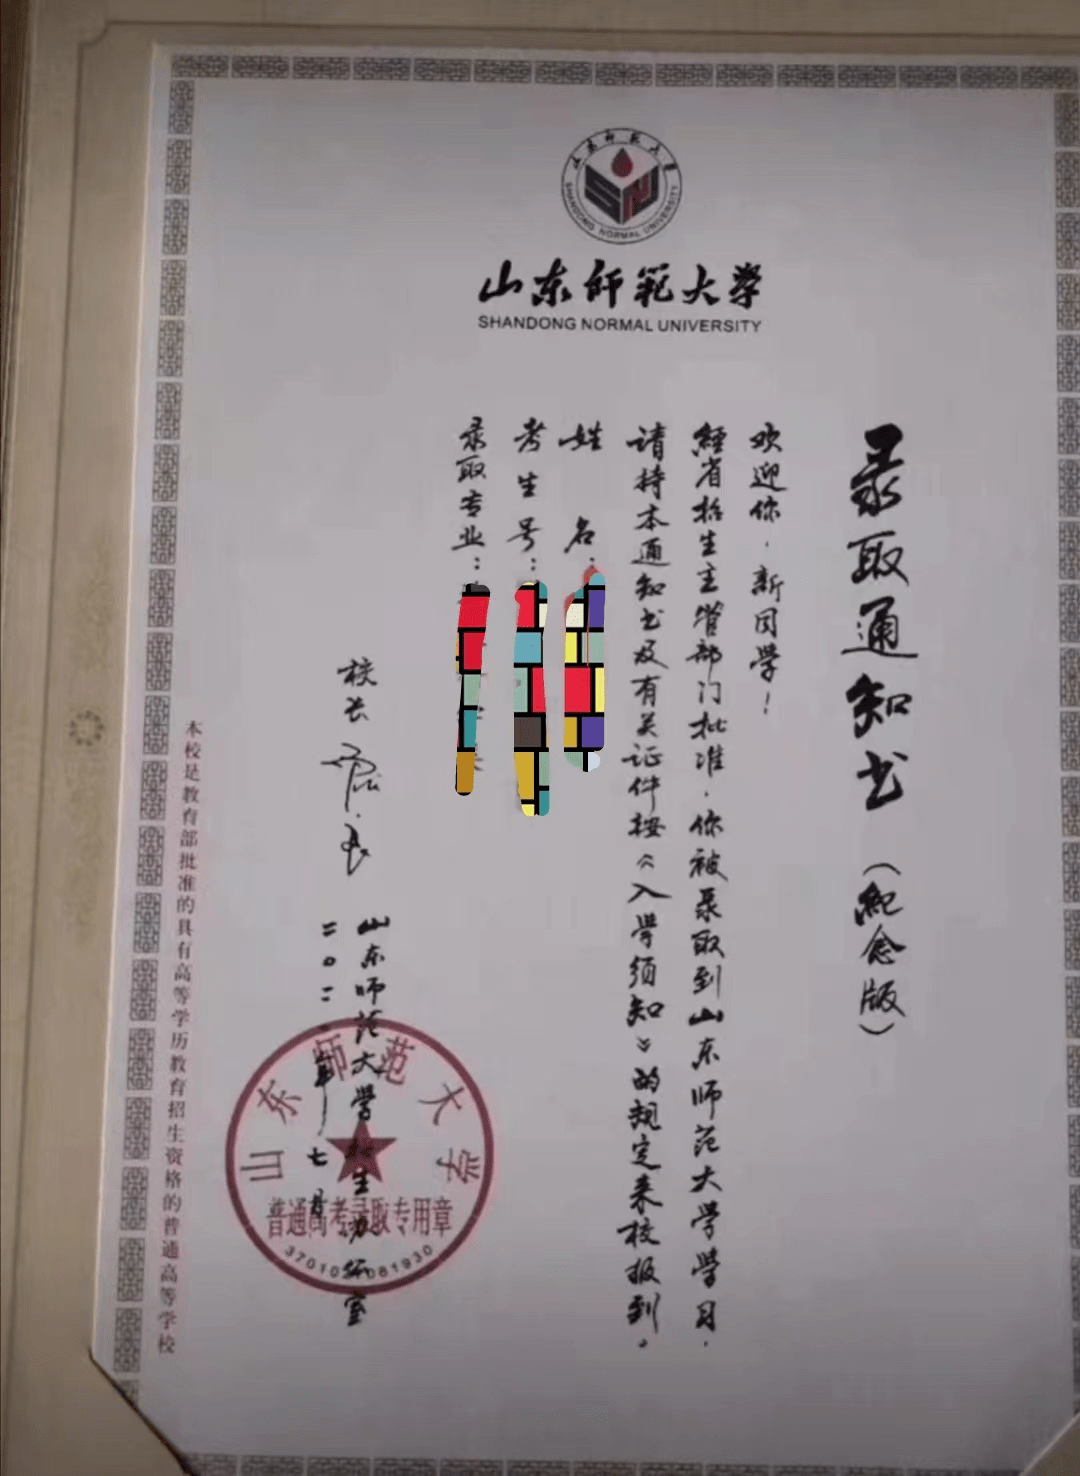 山东师范大学
SHANDONG NORMAL UNIVERSITY
山东師範大学
SHANDONG NORMAL UNIVERSITY
录取通知书（纪念版）
欢迎你，新同学！
经省招生主管部门批准，你被录取到山东师范大学学习，
请持本通知书及有关证件按《入学须知》的规定来校报到。
姓 名：
考生号：
录取专业：
校长
山东师范大学招生办公室
二〇二一年七月
山东师范大学
普通高考录取专用章
本校是教育部批准的具有高等学历教育招生资格的普通高等学校